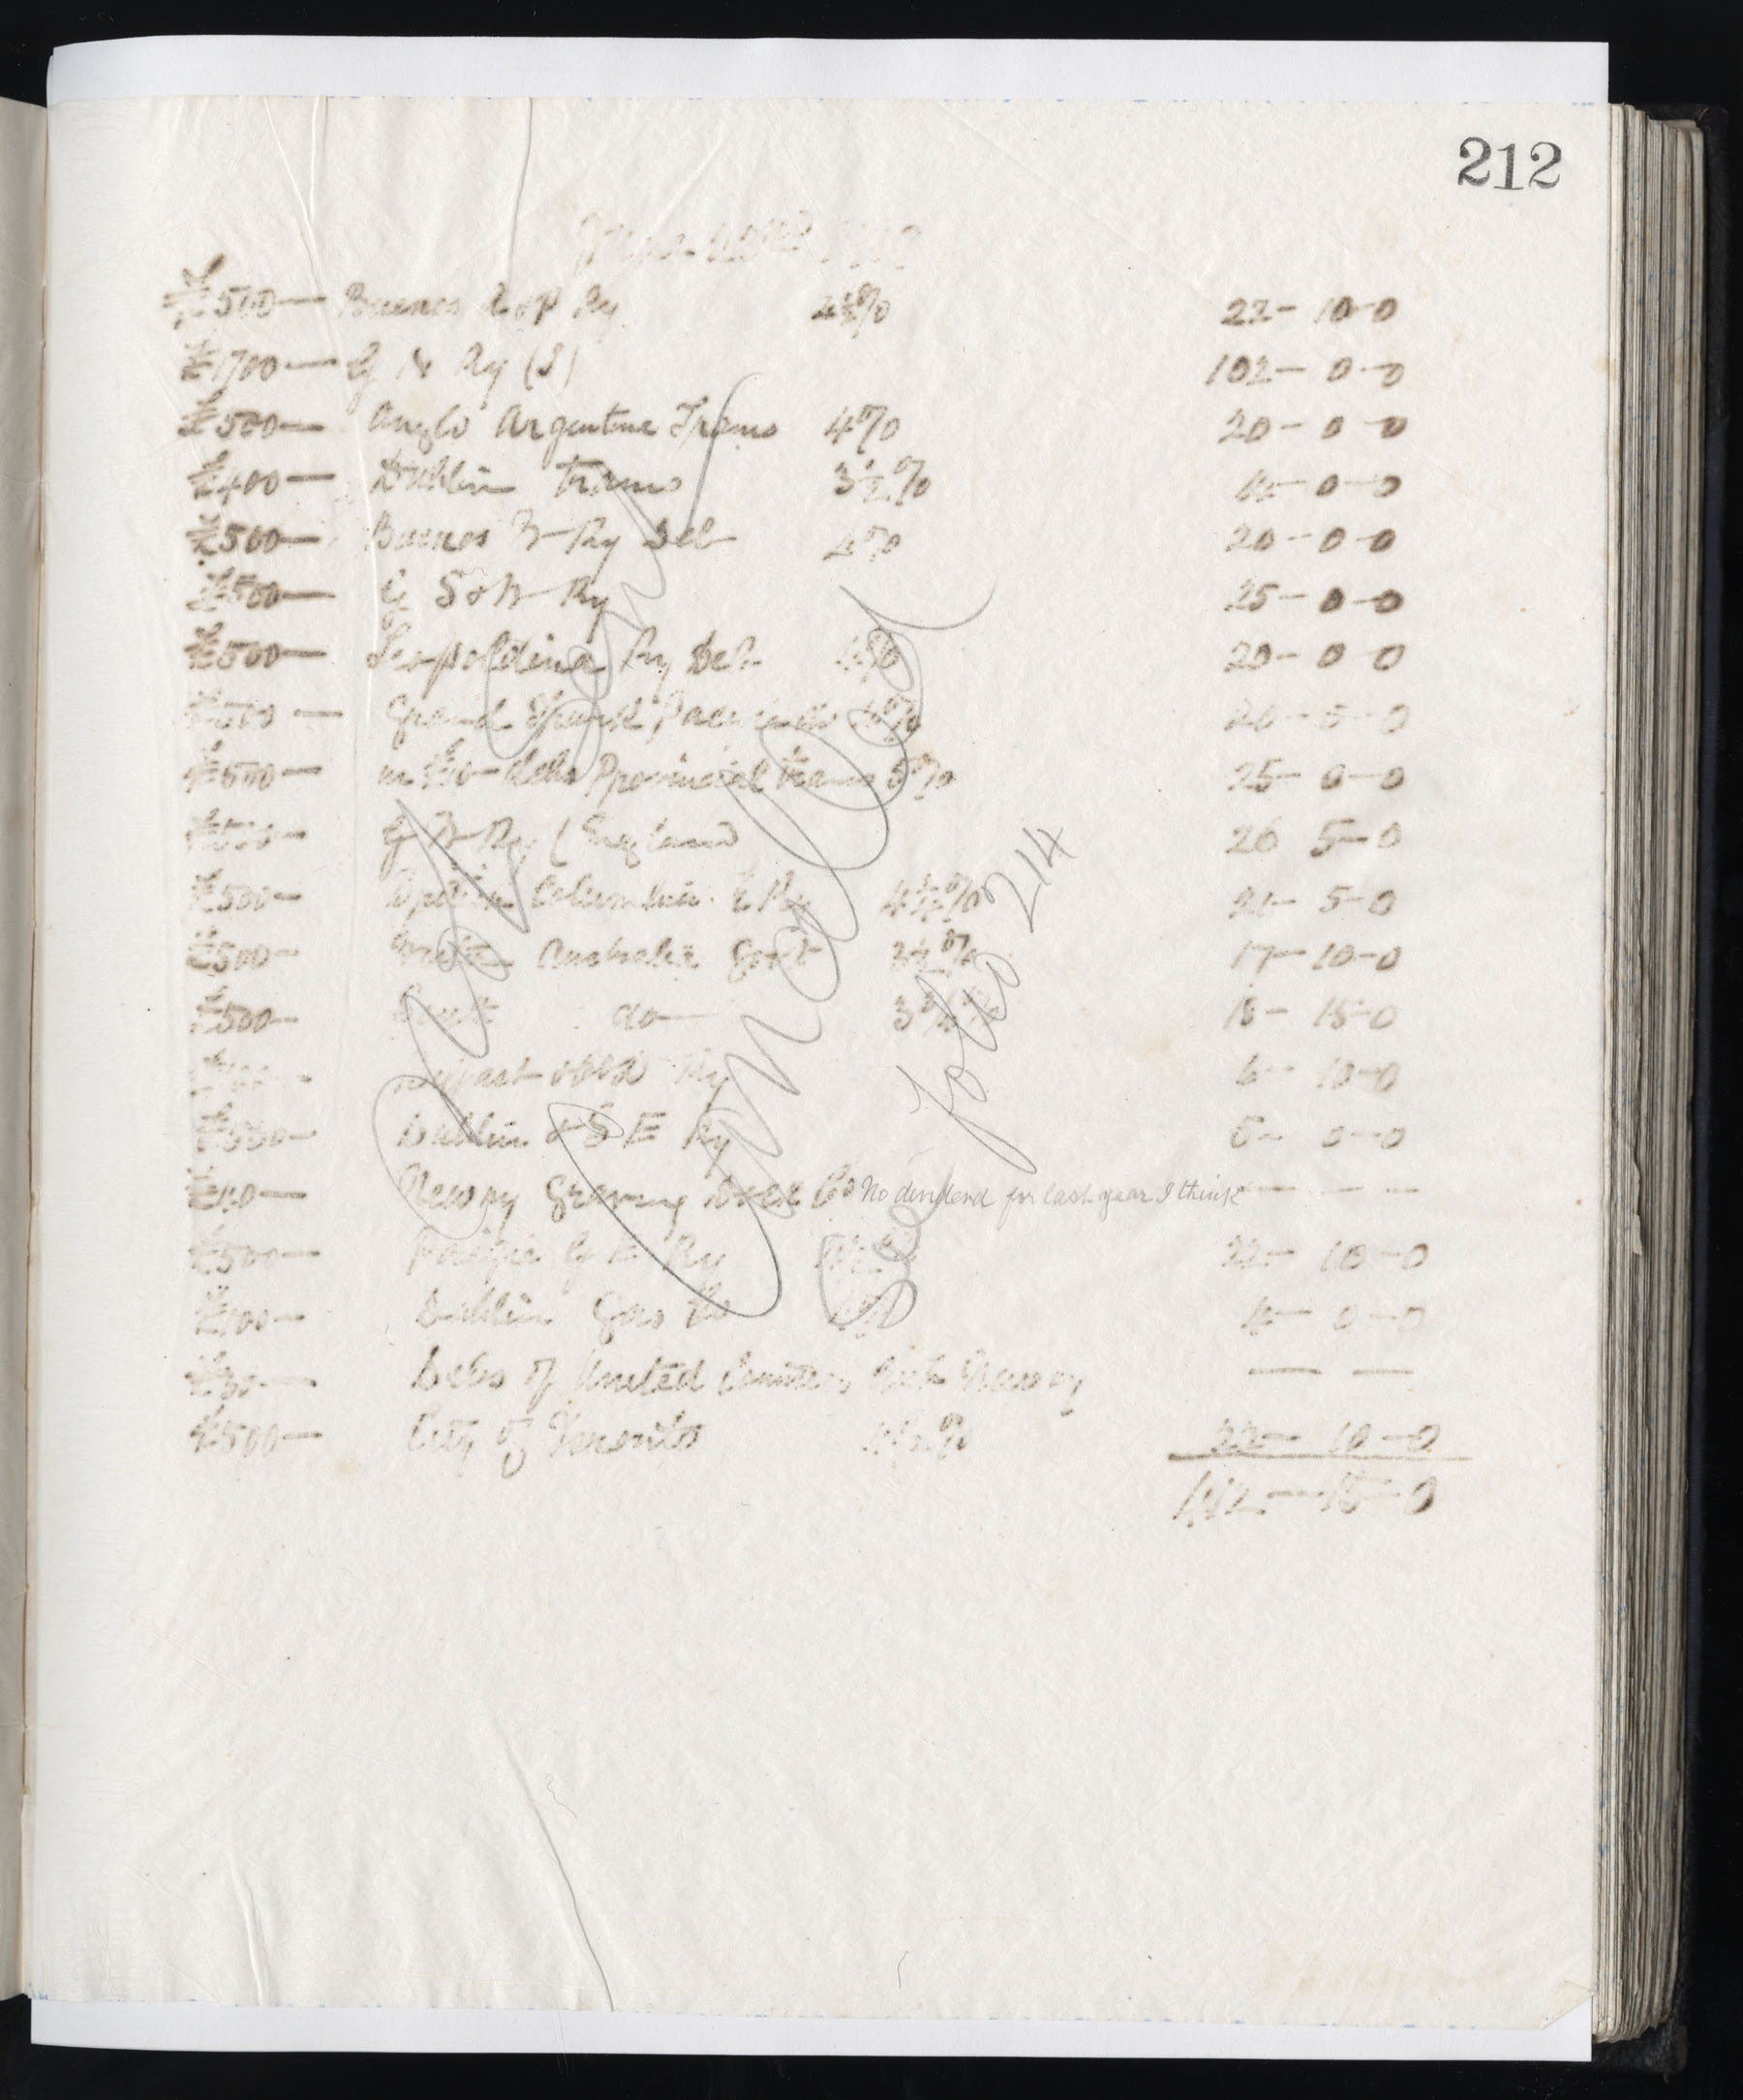 212
£500— Buenos A & P Ry 4½% 22- 10-0
£1700— G N Ry (I) 102- 0-0
£500— Anglo Argentine Trams 4% 20- 0-0
£400— Dublin Trams 3½% 0-0
£500— Buenos W Ry Deb 4% 20- 0-0
£500— G S & W Ry 25- 0-0
£500— Leopoldina Ry Deb 4% 20- 0-0
£500— Grand Trunk Pacific 4% 20- 0-0
£500— in £10- Debs Provincial Trams 5% 25- 0-0
£500— G W Ry (England 26 5-0
£500— British Columbia E Ry 4¼% 21- 5-0
£500— South Australia Govt 3½% 17- 10-0
£500— South do— 3¾% 18- 15-0
Belfast & Co D Ry 6- 10-0
£500— Dublin & S E Ry 5- 0-0
£10— Newry Graving Dock Co No dividend for last year I think — — —
£500— Pacific G E Ry 4½% 22- 10-0
£100— Dublin Gas Co 4% 4- 0-0
Debs of United Club Newry — —
£500— City of Toronto 4½% 22- 10-0
15-0
Cancelled
See folio 214